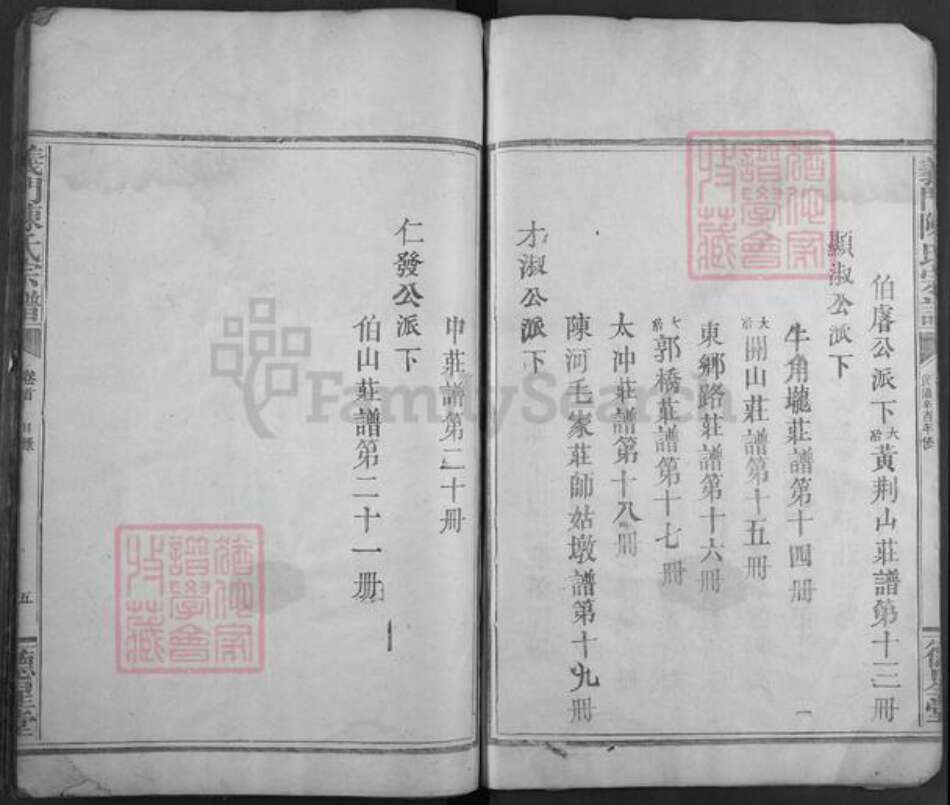 義門陳氏宗譜
伯睿公派下大冶黃荆山莊譜第十三冊
顯淑公派下
牛角壠莊譜第十四冊
大冶開山莊譜第十五冊
東鄉路莊譜第十六冊
大冶郭橋莊譜第十七冊
太沖莊譜第十八冊
陳河毛家莊師姑墩譜第十九冊
才淑公派下
申莊譜第二十冊
仁發公派下
伯山莊譜第二十一冊
義門陳氏宗譜
卷首
五
德星堂
FamilySearch
譜學會
收藏
譜學會
收藏